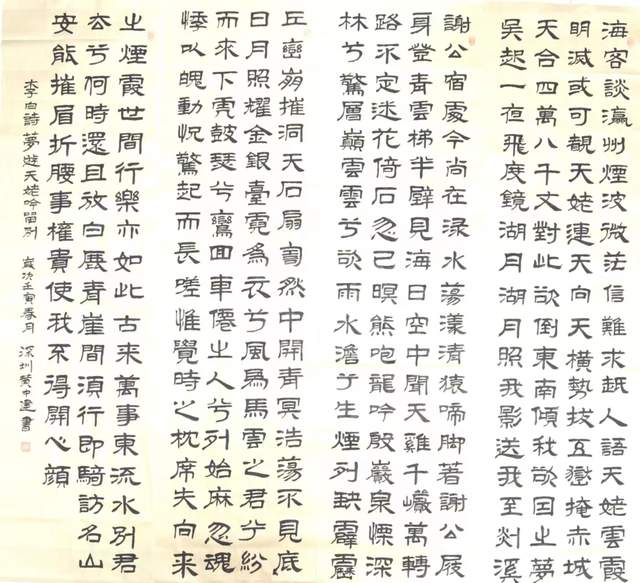 海客談瀛州煙波微茫信難求越人語天姥雲霞
明滅或可覩天姥連天向天橫勢拔五嶽掩赤城
天台四萬八千丈對此欲倒東南傾我欲因之夢
吳越一夜飛度鏡湖月湖月照我影送我至剡溪
謝公宿處今尚在淥水蕩漾清猿啼脚著謝公屐
身登青雲梯半壁見海日空中聞天雞千巖萬轉
路不定迷花倚石忽已暝熊咆龍吟殷巖泉慄深
林兮驚層巔雲雲兮欲雨水澹兮生煙列缺霹靂
丘巒崩摧洞天石扇訇然中開青冥浩蕩不見底
日月照耀金銀臺霓爲衣兮風爲馬雲之君兮紛
而來下虎鼓瑟兮鸞回車僊之人兮列如麻忽魂
悸以魄動怳驚起而長嗟惟覺時之枕席失向來
之煙霞世間行樂亦如此古來萬事東流水別君
去兮何時還且放白鹿青崖間須行即騎訪名山
安能摧眉折腰事權貴使我不得開心顔
李白詩夢遊天姥吟留別 歲次壬寅春月 深圳黃中建書